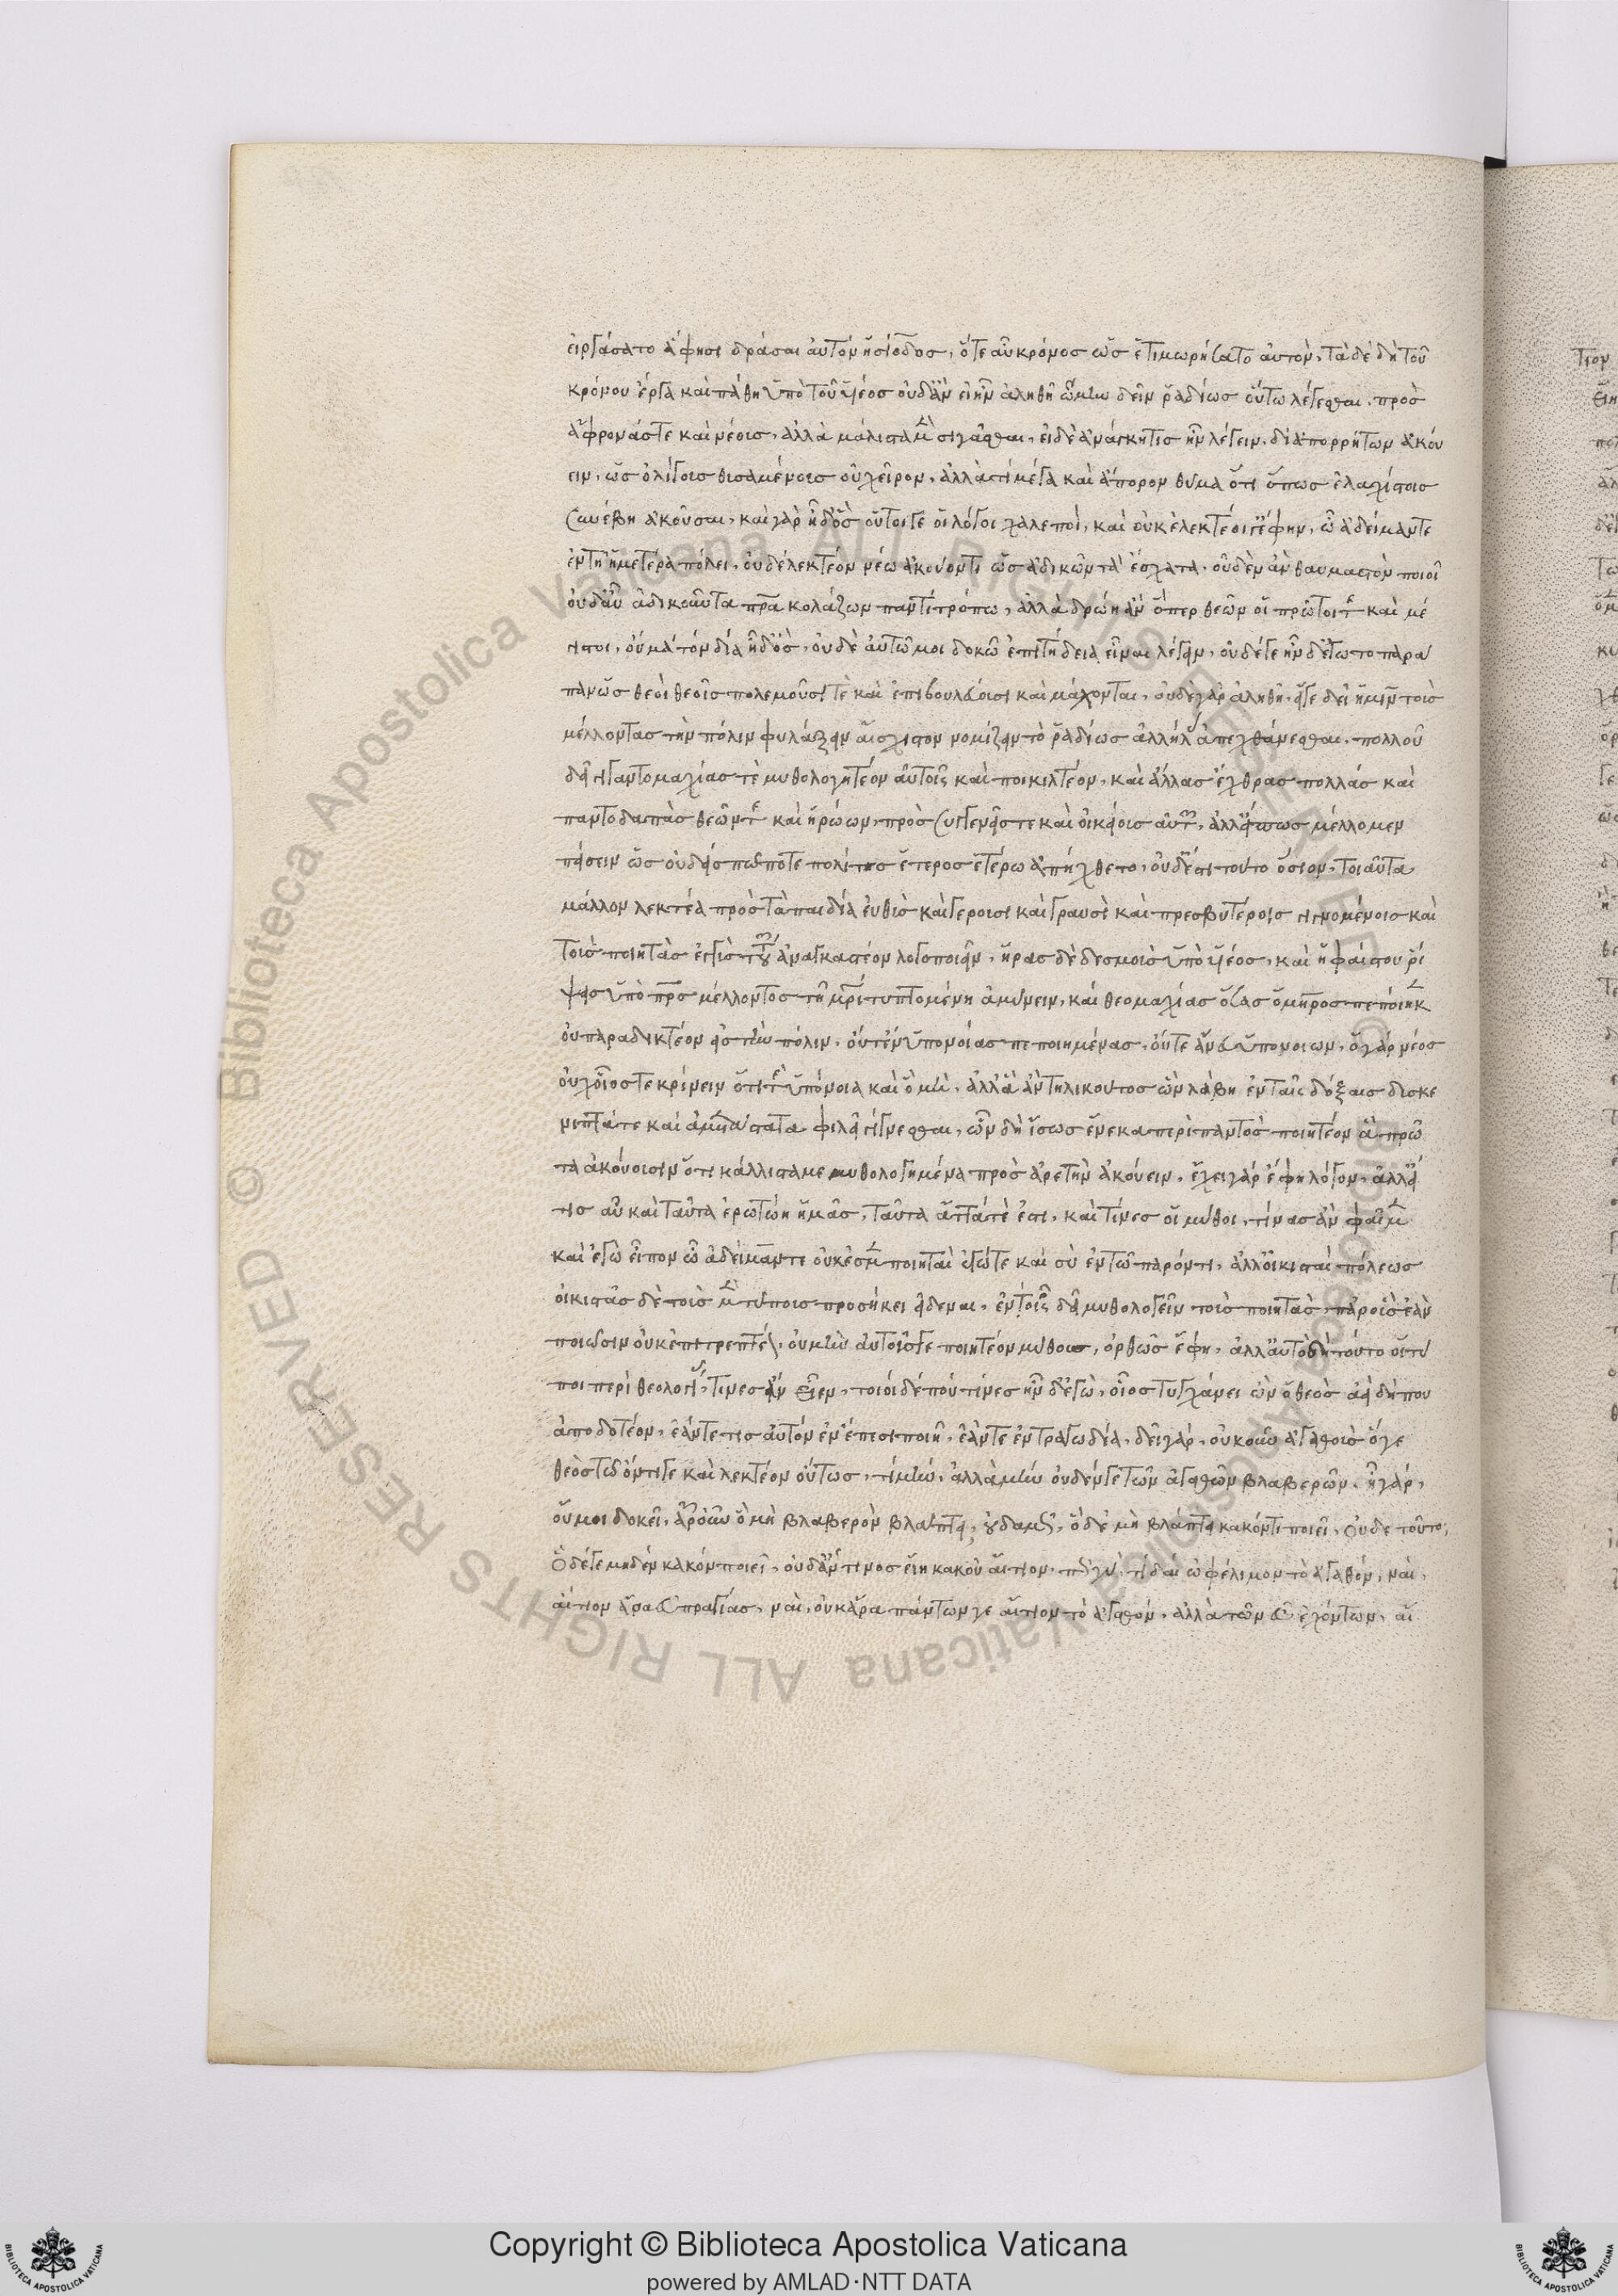 εἰργάσατο ἅ φησι δρᾶσαι αὐτὸν ἡσίοδος, ὅ τε αὖ κρόνος ὡς ἐτιμωρήσατο αὐτόν, τὰ δὲ δὴ τοῦ
κρόνου ἔργα καὶ πάθη ὑπὸ τοῦ υἱέος οὐδ' ἂν εἰ ἦν ἀληθῆ ὤμην δεῖν ῥαδίως οὕτω λέγεσθαι, πρὸς
ἄφρονάς τε καὶ νέους, ἀλλὰ μάλιστα μὲν σιγᾶσθαι, εἰ δὲ ἀνάγκη τις ἦν λέγειν, δι' ἀπορρήτων ἀκού
ειν, ὡς ὀλίγους θυσαμένους οὐ χοῖρον, ἀλλά τι μέγα καὶ ἄπορον θῦμα ὅτι ὅπως ἐλαχίστοις
συνέβη ἀκοῦσαι, καὶ γὰρ ἦ δ' ὃς οὗτοί γε οἱ λόγοι χαλεποί, καὶ οὐ λεκτέοι γ' ἔφην, ὦ ἀδείμαντε
ἐν τῇ ἡμετέρᾳ πόλει, οὐδὲ λεκτέον νέῳ ἀκούοντι ὡς ἀδικῶν τὰ ἔσχατα, οὐδὲν ἂν θαυμαστὸν ποιοῖ
οὐδ' αὖ ἀδικοῦντα πρα κολάζων παντὶ τρόπῳ, ἀλλὰ δρῴη ἂν ὅπερ θεῶν οἱ πρῶτοί τε καὶ μέ
γιστοι, οὐ μὰ τὸν δία ἦ δ' ὅς, οὐδὲ αὐτῷ μοι δοκῶ ἐπιτήδεια εἶναι λέγειν, οὐδέ γε ἦν δ' ἐγὼ τὸ παρά
παν ὡς θεοὶ θεοῖς πολεμοῦσί τε καὶ ἐπιβουλεύουσι καὶ μάχονται, οὐδὲ γὰρ ἀληθῆ, εἴ γε δεῖ ἡμῖν τοὺς
μέλλοντας τὴν πόλιν φυλάξειν αἴσχιστον νομίζειν τὸ ῥαδίως ἀλλήλοις ἀπεχθάνεσθαι, πολλοῦ
δεῖ γιγαντομαχίας τε μυθολογητέον αὐτοῖς καὶ ποικιλτέον, καὶ ἄλλας ἔχθρας πολλὰς καὶ
παντοδαπὰς θεῶν τε καὶ ἡρώων, πρὸς συγγενεῖς τε καὶ οἰκείους αὐτῶν, ἀλλ' εἴ πως μέλλομεν
πείσειν ὡς οὐδεὶς πώποτε πολίτης ἕτερος ἑτέρῳ ἀπήχθετο, οὐδ' ἔστι τοῦτο ὅσιον, τοιαῦτα
μᾶλλον λεκτέα πρὸς τὰ παιδία εὐθὺς καὶ γέρουσι καὶ γραυσὶ καὶ πρεσβυτέροις γιγνομένοις καὶ
τοὺς ποιητὰς ἐγγὺς τούτων ἀναγκαστέον λογοποιεῖν, ἥρας δὲ δεσμοὺς ὑπὸ υἱέος, καὶ ἡφαίστου ῥί
ψεις ὑπὸ πρς μέλλοντος τῇ μρι τυπτομένῃ ἀμύνειν, καὶ θεομαχίας ὅσας ὅμηρος πεποίηκεν
οὐ παραδεκτέον εἰς τὴν πόλιν, οὔτ' ἐν ὑπονοίαις πεποιημένας, οὔτε ἄνευ ὑπονοιῶν, ὁ γὰρ νέος
οὐχ οἷός τε κρίνειν ὅτι τε ὑπόνοια καὶ ὃ μή, ἀλλ' ἃ ἂν τηλικοῦτος ὢν λάβῃ ἐν ταῖς δόξαις δυσέκ
νιπτά τε καὶ ἀμετάστατα φιλεῖ γίγνεσθαι, ὧν δὴ ἴσως ἕνεκα περὶ παντὸς ποιητέον ἃ πρῶ
τα ἀκούουσιν ὅτι κάλλιστα μεμυθολογημένα πρὸς ἀρετὴν ἀκούειν, ἔχει γάρ ἔφη λόγον, ἀλλ' εἴ
τις αὖ καὶ ταῦτα ἐρωτῴη ἡμᾶς, ταῦτα ἅττα τέ ἐστι, καὶ τίνες οἱ μῦθοι, τίνας ἂν φαῖμεν
καὶ ἐγὼ εἶπον ὦ ἀδείμαντε οὐκ ἐσμὲν ποιηταὶ ἐγώ τε καὶ σὺ ἐν τῷ παρόντι, ἀλλ' οἰκισταὶ πόλεως
οἰκιστὰς δὲ τοὺς μὲν τύπους προσήκει εἰδέναι, ἐν τοῖς δεῖ μυθολογεῖν τοὺς ποιητάς, παρ' οὓς ἐὰν
ποιῶσιν οὐκ ἐπιτρεπτέον, οὐ μὴν αὐτοῖς γε ποιητέον μύθους, ὀρθῶς ἔφη, ἀλλ' αὐτὸ δὴ τοῦτο οἱ τύ
ποι περὶ θεολογίας, τίνες ἂν εἶεν, τοιοίδε πού τινες ἦν δ' ἐγώ, οἷος τυγχάνει ὢν ὁ θεὸς ἀεὶ δήπου
ἀποδοτέον, ἐάν τέ τις αὐτὸν ἐν ἔπεσι ποιῇ, ἐάν τε ἐν τραγῳδίᾳ, δεῖ γάρ, οὐκοῦν ἀγαθὸς ὅ γε
θεὸς τῷ ὄντι γε καὶ λεκτέον οὕτως, τί μήν, ἀλλὰ μὴν οὐδέν γε τῶν ἀγαθῶν βλαβερόν, ἦ γάρ,
οὔ μοι δοκεῖ, ἆρ' οὖν ὃ μὴ βλαβερὸν βλάπτει; οὐδαμῶς, ὃ δὲ μὴ βλάπτει κακόν τι ποιεῖ, οὐδὲ τοῦτο,
ὃ δέ γε μηδὲν κακὸν ποιεῖ, οὐδ' ἄν τινος εἴη κακοῦ αἴτιον, πῶς γάρ, τί δαί ὠφέλιμον τὸ ἀγαθόν, ναί,
αἴτιον ἄρα εὐπραγίας, ναί, οὐκ ἄρα πάντων γε αἴτιον τὸ ἀγαθόν, ἀλλὰ τῶν εὖ ἐχόντων, αἴ